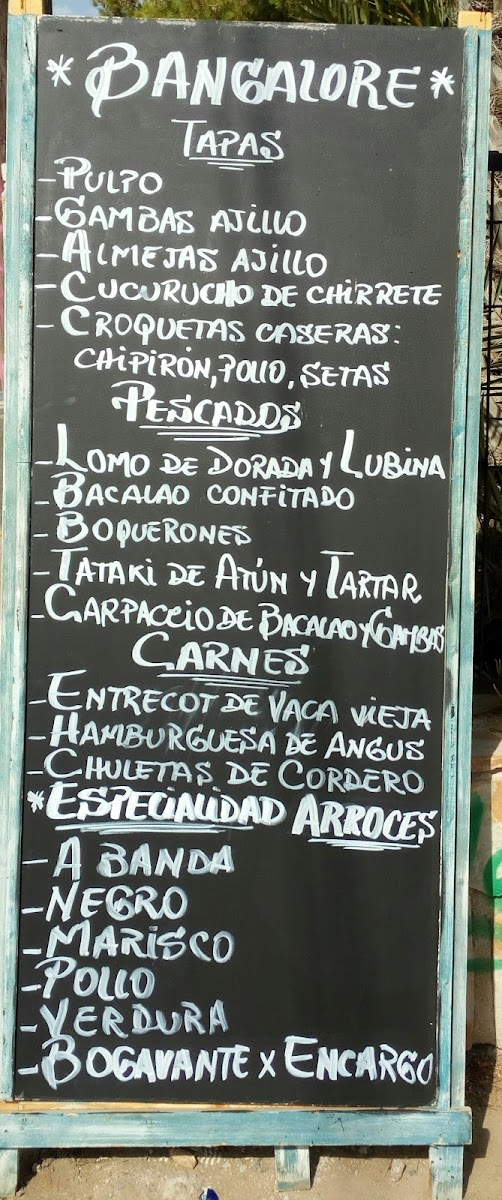 * BANGALORE *
TAPAS
- PULPO
- GAMBAS AJILLO
- ALMEJAS AJILLO
- CUCURUCHO DE CHIRRETE
- CROQUETAS CASERAS:
CHIPIRÓN, POLLO, SETAS
PESCADOS
- LOMO DE DORADA Y LUBINA
- BACALAO CONFITADO
- BOQUERONES
- TATAKI DE ATÚN Y TARTAR
- CARPACCIO DE BACALAO Y GAMBAS
CARNES
- ENTRECOT DE VACA VIEJA
- HAMBURGUESA DE ANGUS
- CHULETAS DE CORDERO
* ESPECIALIDAD ARROCES
- A BANDA
- NEGRO
- MARISCO
- POLLO
- VERDURA
- BOGAVANTE X ENCARGO